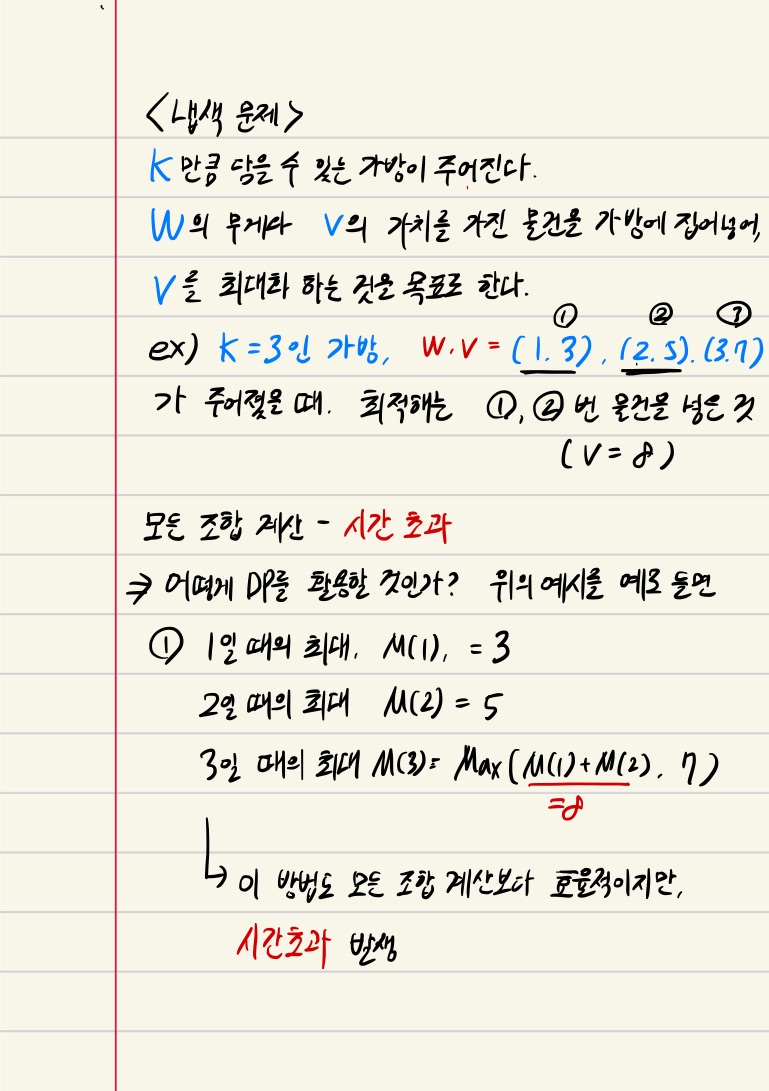 <냅색 문제>
K 만큼 담을 수 있는 가방이 주어진다.
W의 무게와 V의 가치를 가진 물건을 가방에 집어넣어,
V를 최대화 하는 것을 목표로 한다.
① ② ③
ex) K=3인 가방, W.V = (1.3), (2.5). (3.7)
가 주어졌을 때. 최적해는 ①,② 번 물건을 넣은 것
(V=8)
모든 조합 계산 - 시간 초과
⇒ 어떻게 DP를 활용할 것인가? 위의 예시를 예로 들면
① 1일 때의 최대. M(1), = 3
2일 때의 최대 M(2) = 5
3일 때의 최대 M(3)= Max(M(1)+M(2). 7)
=8
↳ 이 방법도 모든 조합 계산보다 효율적이지만,
시간초과 발생